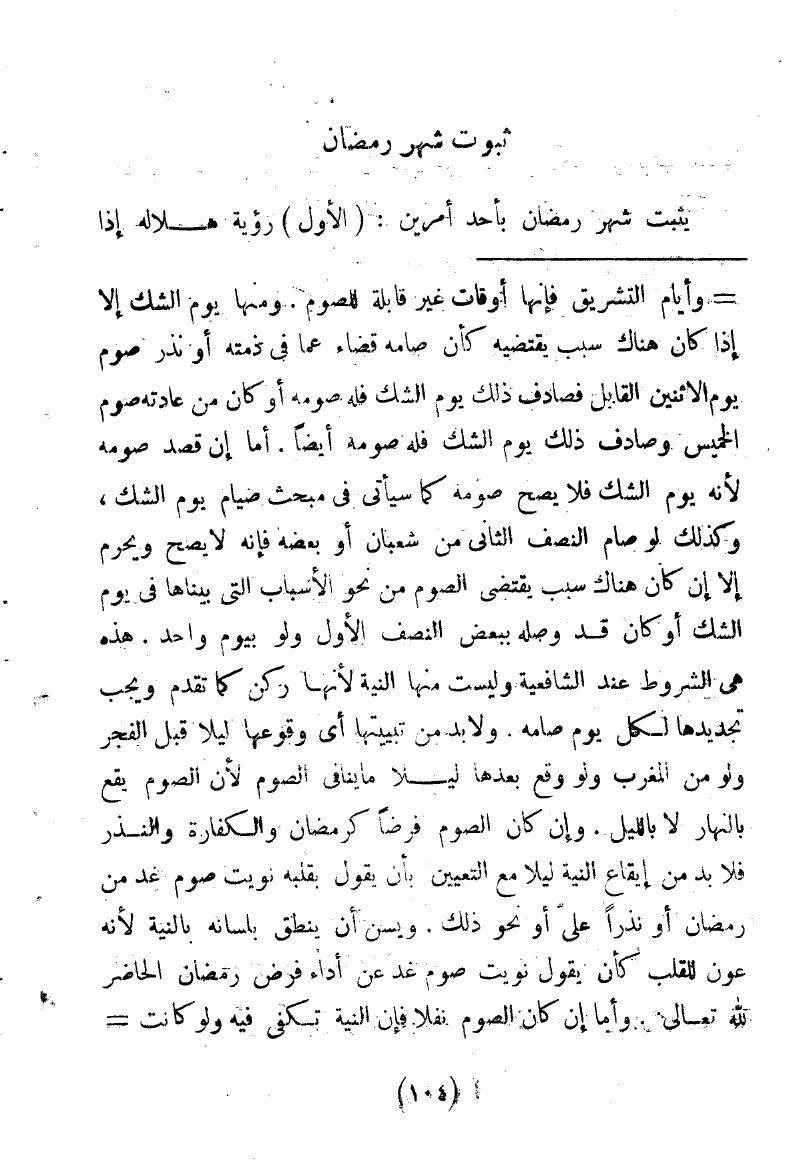 ثبوت شهر رمضان
يثبت شهر رمضان بأحد أمرين : ( الأول ) رؤية هلاله إذا
= وأيام التشريق فإنها أوقات غير قابلة للصوم . ومنها يوم الشك إلا
إذا كان هناك سبب يقتضيه كأن صامه قضاء عما فى ذمته أو نذر صوم
يوم الاثنين القابل فصادف ذلك يوم الشك فله صومه أو كان من عادته صوم
الخميس وصادف ذلك يوم الشك فله صومه أيضاً . أما إن قصد صومه
لأنه يوم الشك فلا يصح صومه كما سيأتى فى مبحث صيام يوم الشك ،
وكذلك لو صام النصف الثانى من شعبان أو بعضه فإنه لايصح ويحرم
إلا إن كان هناك سبب يقتضى الصوم من نحو الأسباب التى بيناها فى يوم
الشك أو كان قد وصله ببعض النصف الأول ولو بيوم واحد . هذه
هى الشروط عند الشافعية وليست منها النية لأنها ركن كما تقدم ويجب
تجديدها لكل يوم صامه . ولابد من تبييتها أى وقوعها ليلا قبل الفجر
ولو من المغرب ولو وقع بعدها ليلا ماينافى الصوم لأن الصوم يقع
بالنهار لا بالليل . وإن كان الصوم فرضاً كرمضان والكفارة والنذر
فلا بد من إيقاع النية ليلا مع التعيين بأن يقول بقلبه نويت صوم غد من
رمضان أو نذراً علىّ أو نحو ذلك . ويسن أن ينطق بلسانه بالنية لأنه
عون للقلب كأن يقول نويت صوم غد عن أداء فرض رمضان الحاضر
لله تعالى . وأما إن كان الصوم نفلا فإن النية تكفى فيه ولو كانت =
(١٠٤)